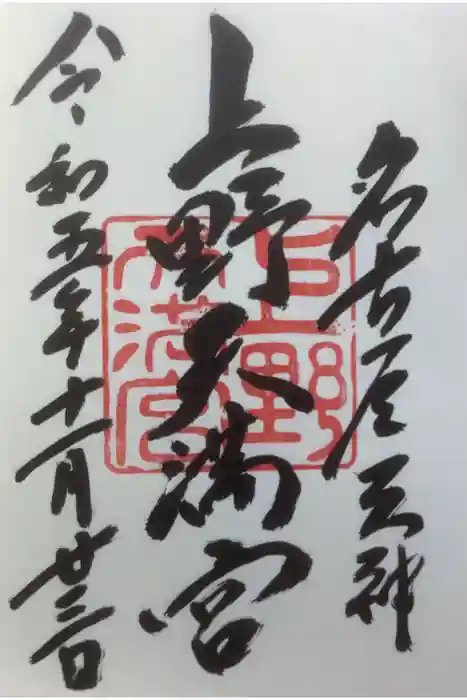 名古屋天神
上野天満宮
令和五年十一月廿三日
上野
天満宮